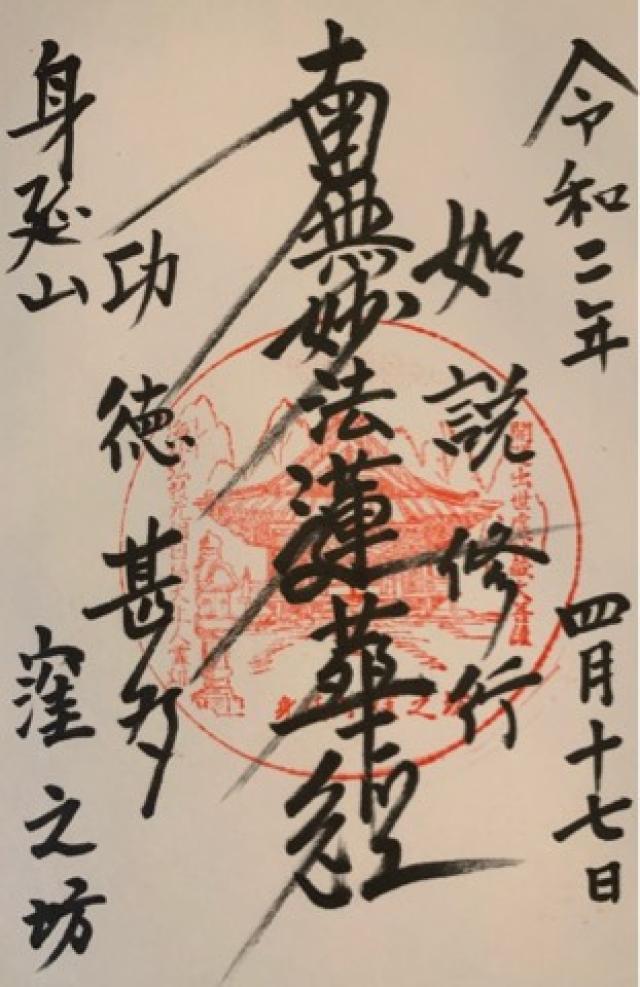 令和二年 四月十七日
如説修行
南無妙法蓮華経
功徳甚多
身延山 窪之坊